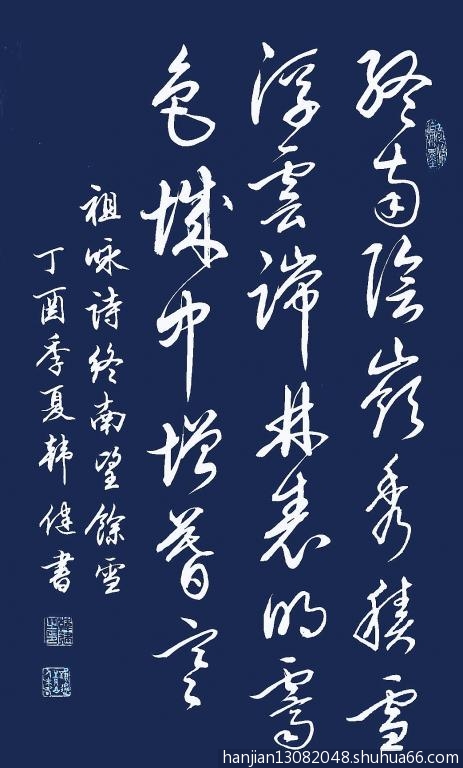 終南陰嶺秀積雪
浮雲端林表明霽
色城中增暮寒
祖咏詩終南望餘雪
丁酉季夏韩健書
hanjian13082048.shuhua66.com